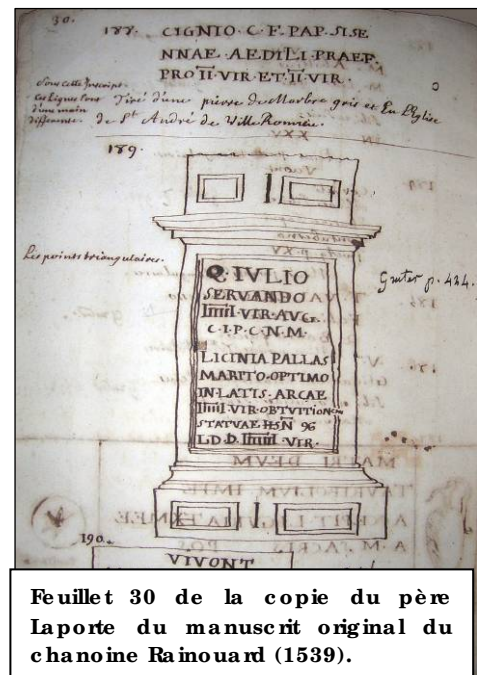 30.
188. CIGNIO · C · F · PAP · SISE
NNAE · AEDILI · PRAEF ·
PRO I̅I̅ VIR · ET · I̅I̅ VIR ·
Sous cette Inscript.
ces lignes sont
d'une main
differente.
Tiré d'une pierre de Marbre gris et En L'Eglise
de St André de Ville Romieu.
189.
Les points triangulaires.
Gruter p. 424.
Q · IVLIO
SERVANDO
I̅I̅I̅I̅I̅I̅ VIR · AVG
C · I · P · C · N · M ·
LICINIA PALLAS
MARITO · OPTIMO
IN · LATIS · ARCAE
I̅I̅I̅I̅I̅I̅ VIR · OB TVITION
STATVAE
L D · D · I̅I̅I̅I̅I̅I̅ VIR ·
190.
VIVONT
Feuillet 30 de la copie du père
Laporte du manuscrit original du
chanoine Rainouard (1539).